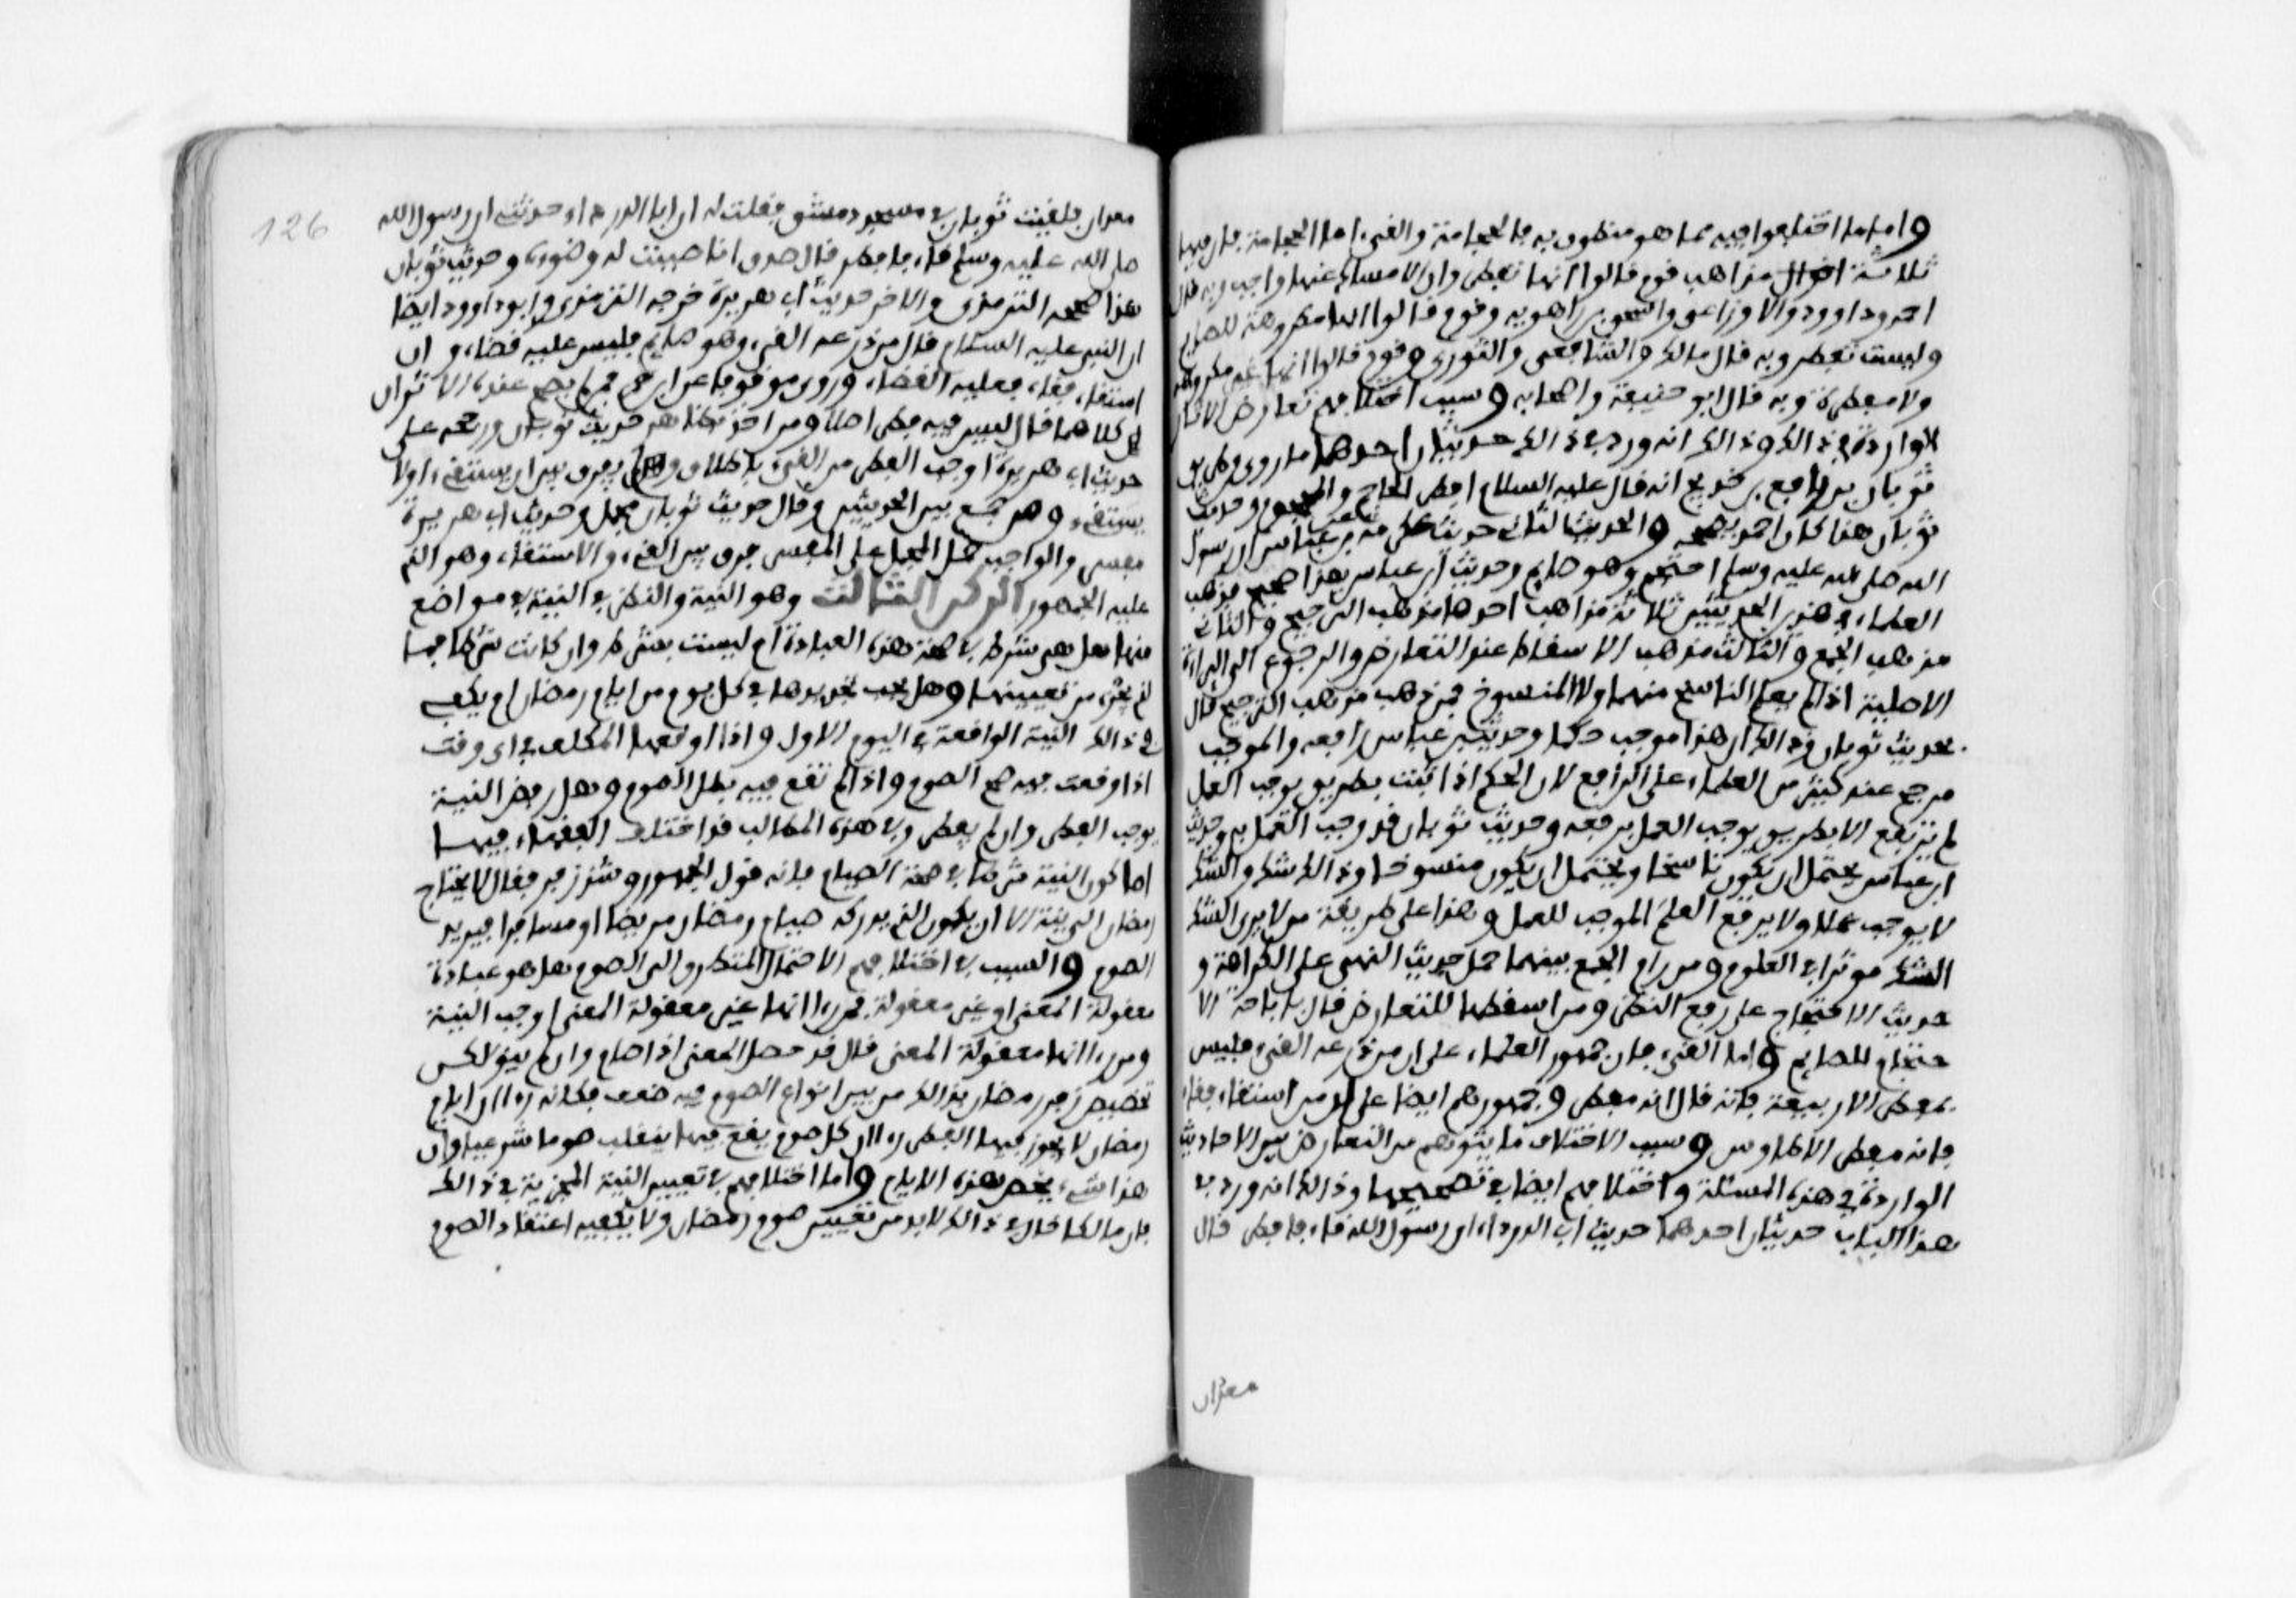 واما ما اختلفوا فيه مما هو منطوق به فالحجامة والقيء اما الحجامة فان فيها
ثلاثة اقوال مذاهب قوم قالوا انها تفطر وان الامساك عنها واجب وبه قال
احمد وداوود والاوزاعي واسحق بن راهويه وقوم قالوا انها مكروهة للصايم
وليست تفطر وبه قال مالك والشافعي والثوري وقوم قالوا انها غير مكروهة
ولا مفطرة وبه قال ابو حنيفة واصحابه وسبب اختلافهم تعارض الاثار
الواردة في ذالك وذالك انه ورد في ذالك حديثان احدهما ما روي من طريق
ثوبان بن رافع بن خديج انه قال عليه السلام افطر الحاجم والمحجوم وحديث
ثوبان هذا كان احمد يصححه والحديث الثاني حديث عكرمة عن بن عباس ان رسول
الله صلى الله عليه وسلم احتجم وهو صايم وحديث ابن عباس هذا صحيح فذهب
العلماء في هذين الحديثين ثلاثة مذاهب احدها مذهب الترجيح والثاني
مذهب الجمع والثالث مذهب الاسقاط عند التعارض والرجوع الى البراءة
الاصلية اذا لم يعلم الناسخ منهما ولا المنسوخ فمن ذهب مذهب الترجيح قال
بحديث ثوبان وذالك ان هذا موجب حكما وحديث بن عباس رافعه والموجب
مرجح عند كثير من العلماء على الرافع لان الحكم اذا ثبت بطريق يوجب العمل
لم يرتفع الا بطريق يوجب العمل برفعه وحديث ثوبان قد وجب العمل به وحديث
ابن عباس يحتمل ان يكون ناسخا ويحتمل ان يكون منسوخا وذالك شك والشك
لا يوجب عملا ولا يرفع العلم الموجب للعمل وهذا على طريقة من لا يرى الشك
الشك موثرا في العلوم ومن رام الجمع بينهما حمل حديث النهي على الكراهة و
حديث الاحتجام على رفع الخطر ومن اسقطهما للتعارض قال باباحة الا
حتجام للصايم واما القيء فان جمهور العلماء على ان من ذرعه القيء فليس
بمفطر الا ربيعة فانه قال انه مفطر وجمهورهم ايضا على ان من استقاء فقاء
فانه مفطر الا طاوس وسبب الاختلاف ما يتوهم من التعارض بين الاحاديث
الواردة في هذه المسئلة واختلافهم ايضا في تصحيحها وذالك انه ورد في
هذا الباب حديثان احدهما حديث ابي الدرداء ان رسول الله قاء فافطر قال
معدان
126
معدان فلقيت ثوبان في مسجد دمشق فقلت له ان ابا الدرداء حدثني ان رسول الله
صلى الله عليه وسلم قاء فافطر قال صدق انا صببت له وضوءه وحديث ثوبان
هذا صححه الترمذي والاخر حديث ابي هريرة خرجه الترمذي وابو داوود ايضا
ان النبي عليه السلام قال من ذرعه القيء وهو صايم فليس عليه قضاء وان
استقاء فقاء فعليه القضاء وروي موقوفا عن ابن عمر فمن لم يصح عنده الاثران
كلاهما قال ليس فيه فطر اصلا ومن اخذ بظاهر حديث ثوبان ورجحه على
حديث ابي هريرة اوجب الفطر من القيء باطلاق ولم يفرق بين ان يستقيء اولا
يستقيء ومن جمع بين الحديثين وقال حديث ثوبان مجمل وحديث ابي هريرة
مفسر والواجب حمل المجمل على المفسر فرق بين القيء والاستقاء وهو الذي
عليه الجمهور الركن الثالث وهو النية والنظر في النية في مواضع
منها هل هي شرط في صحة هذه العبادة ام ليست بشرط وان كانت شرطا فما
الذي يجزء من تعيينها وهل يجب تجديدها في كل يوم من ايام رمضان ام يكفي
في ذالك النية الواقعة في اليوم الاول واذا اوقعها المكلف في اي وقت
اذا وقعت فيه صح الصوم واذا لم تقع فيه بطل الصوم وهل رفض النية
يوجب الفطر وان لم يفطر وفي هذه المطالب قد اختلف الفقهاء فيها
اما كون النية شرطا في صحة الصيام فانه قول الجمهور وشذ زفر فقال لا يحتاج
رمضان الى نية الا ان يكون الذي يدركه صيام رمضان مريضا او مسافرا فيريد
الصوم والسبب في اختلافهم الاحتمال المتطرق الى الصوم هل هو عبادة
معقولة المعنى او غير معقولة فمن رءا انها غير معقولة المعنى اوجب النية
ومن رءا انها معقولة المعنى قال قد حصل المعنى اذا صام وان لم ينو لكن
تخصيص زفر رمضان بذالك من بين انواع الصوم فيه ضعف فكانه رءا ان ايام
رمضان لا يجوز فيها الفطر رءا ان كل صوم يقع فيها ينقلب صوما شرعيا وان
هذا شيء يخص هذه الايام واما اختلافهم في تعيين النية المجزية في ذالك
فان مالكا قال في ذالك لا بد من تعيين صوم رمضان ولا يكفيه اعتقاد الصوم